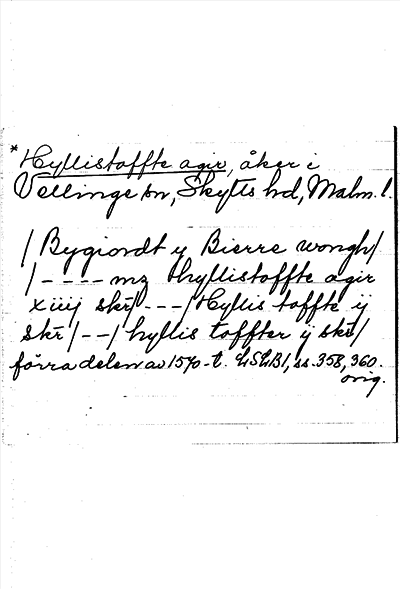 * Hyllistoffte agir, åker i
Vellinge sn, Skytts hd, Malm. l.
/ Bygiordt y Bierre wongh/
/---- mz Hyllistoffte agir
xiiij skr/---/Hyllis toffte ij
skr/--/hyllis toffter ij skr/
förra delen av 1570-t. LSLB1, ss. 358, 360.
orig.